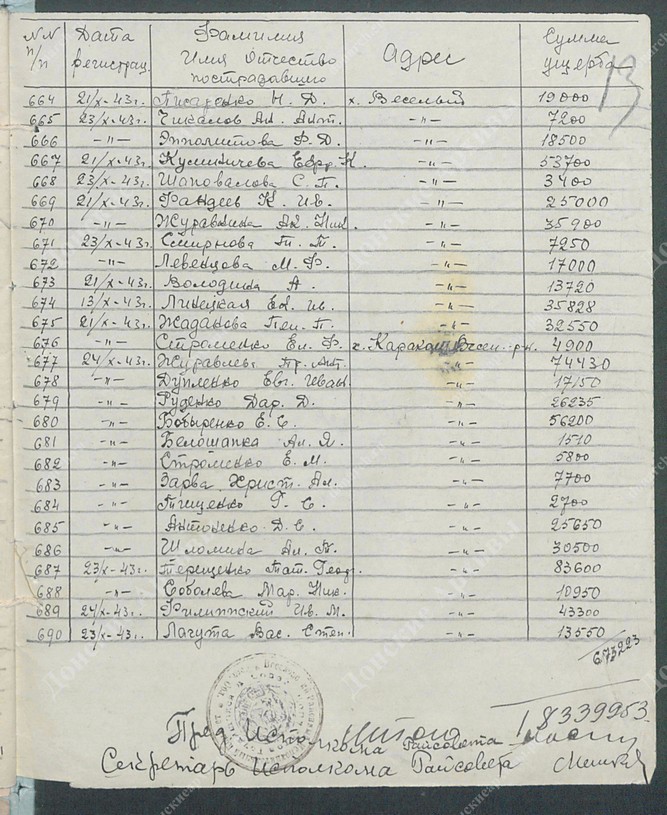 NN п/п Дата регистрац. Фамилия Имя Отчество пострадавшего Адрес Сумма ущерба
13
664 21/X-43г. Писаренко Н. Д. х. Веселый 19000
665 23/X-43г. Чикалов Ан. Ант. -"- 7200
666 -"- Ипполитова Ф. Д. -"- 18500
667 21/X-43г. Кумпичева Евд. К. -"- 53700
668 23/X-43г. Шаповалова С. П. -"- 3400
669 21/X-43г. Фандеев К. Ив. -"- 25000
670 -"- Журавкина Ан. Ник. -"- 35900
671 23/X-43г. Смирнова -"- 7250
672 -"- Левенцова М. Ф. -"- 17000
673 21/X-43г. Володина А. -"- 13720
674 13/X-43г. Линецкая Ев. Ив. -"- 35828
675 21/X-43г. Жаданова Пел. П. -"- 32550
676 -"- Строменко Ел. Ф. 4900
677 24/X-43г. Журавлев Пр. Ант. -"- 74430
678 -"- Дупленко Евг. Иван -"- 17150
679 -"- Руденко Дар. Д. -"- 26235
680 -"- Бобыренко Е. С. -"- 56200
681 -"- Белошапка Ал. Я. -"- 1510
682 -"- Строменко Е. М. -"- 5800
683 -"- Зарва Христ. Ал. -"- 7700
684 -"- Тищенко Г. С. -"- 2700
685 -"- Антоненко Д. Е. -"- 25650
686 -"- Шломина Ал. П. -"- 30500
687 23/X-43г. Терещенко Тат. Геор. -"- 83600
688 -"- Соболева Мар. Ник. -"- 10950
689 24/X-43г. Филиппский Ив. М. -"- 43300
690 23/X-43г. Лагута Вас. Степ. -"- 13550
673223
Итого 8339953
Пред. Исполкома Райсовета
Секретарь Исполкома Райсовета